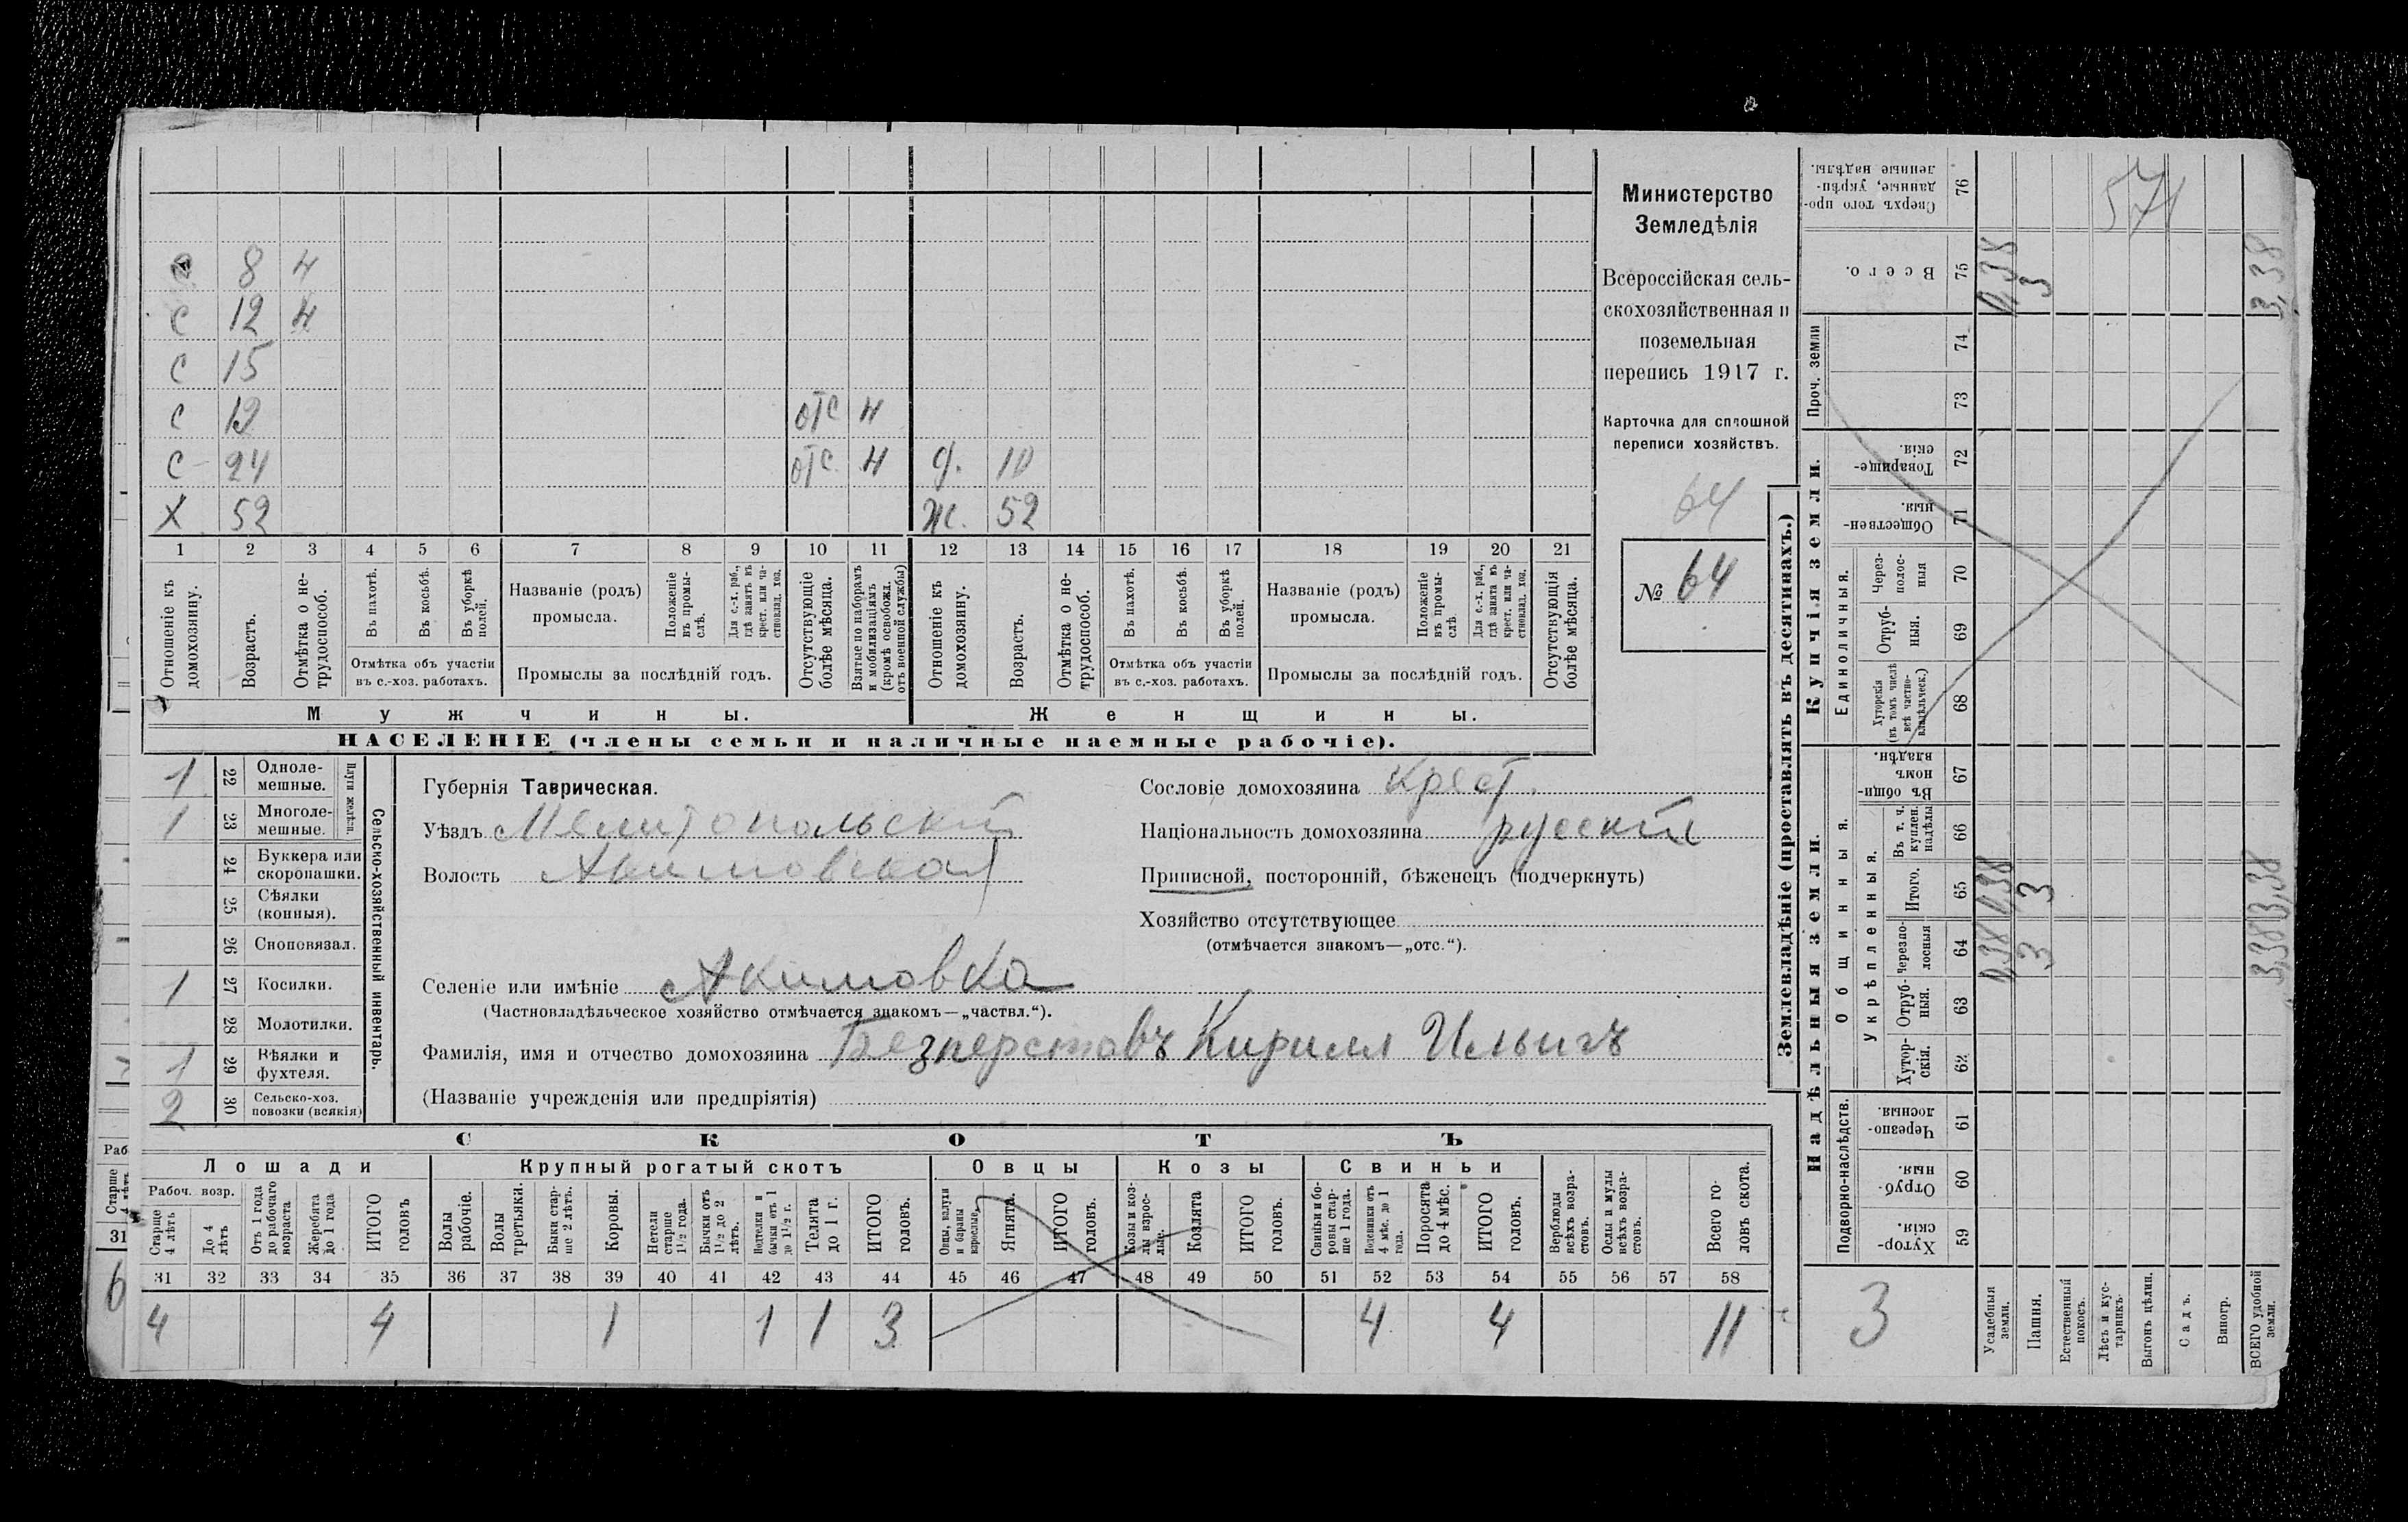 Министерство
Земледѣлія
Всероссійская сель-
скохозяйственная и
поземельная
перепись 1917 г.
Карточка для сплошной
переписи хозяйствъ.
64
№ 64
8 н
с 12 н
с 15
с 19 отс н
с 24 отс. н д. 10
Х 52 Ж. 52
1 2 3 4 5 6 7 8 9 10 11 12 13 14 15 16 17 18 19 20 21
Отношеніе къ домохозяину.
Возрастъ.
Отмѣтка о не-трудоспособ.
Въ пахотѣ.
Въ косьбѣ.
Въ уборкѣ полей.
Отмѣтка объ участіи
въ с.-хоз. работахъ.
Названіе (родъ)
промысла.
Положеніе въ промы-слѣ.
Для с.-х. раб., гдѣ занятъ въ крест. или ча-стновлад. хоз.
Промыслы за послѣдній годъ.
Отсутствующіе болѣе мѣсяца.
Взятые по наборамъ и мобилизаціямъ (кромѣ освобожд. отъ военной службы)
Отношеніе къ домохозяину.
Возрастъ.
Отмѣтка о не-трудоспособ.
Въ пахотѣ.
Въ косьбѣ.
Въ уборкѣ полей.
Отмѣтка объ участіи
въ с.-хоз. работахъ.
Названіе (родъ)
промысла.
Положеніе въ промы-слѣ.
Для с.-х. раб., гдѣ занята въ крест. или ча-стновлад. хоз.
Промыслы за послѣдній годъ.
Отсутствующія болѣе мѣсяца.
Мужчины.
Женщины.
НАСЕЛЕНІЕ (члены семьи и наличные наемные рабочіе).
1 22 Одноле-мешные.
1 23 Многоле-мешные.
Плуги желѣзн.
24 Буккера или скоропашки.
25 Сѣялки (конныя).
26 Сноповязал.
1 27 Косилки.
28 Молотилки.
1 29 Вѣялки и фухтеля.
2 30 Сельско-хоз. повозки (всякія)
Сельско-хозяйственный инвентарь.
Губернія Таврическая.
Уѣздъ Мелитопольскій
Волость Акимовская
Сословіе домохозяина крест.
Національность домохозяина русскій
Приписной, посторонній, бѣженецъ (подчеркнуть)
Хозяйство отсутствующее
(отмѣчается знакомъ—„отс.“).
Селеніе или имѣніе Акимовка
(Частновладѣльческое хозяйство отмѣчается знакомъ—„частвл.“).
Фамилія, имя и отчество домохозяина Безперстовъ Кирилл Ильичъ
(Названіе учрежденія или предпріятія)
СКОТЪ
Лошади
Рабоч. возр.
Старше 4 лѣтъ
До 4 лѣтъ
Отъ 1 года до рабочаго возраста
Жеребята до 1 года
ИТОГО головъ
Крупный рогатый скотъ
Волы рабочіе.
Волы третьяки.
Быки стар-ше 2 лѣтъ.
Коровы.
Нетели старше 1½ года.
Бычки отъ 1½ до 2 лѣтъ.
Подтелки и бычки отъ 1 до 1½ г.
Телята до 1 г.
ИТОГО головъ.
Овцы
Овцы, валухи и бараны взрослые.
Ягнята.
ИТОГО головъ.
Козы
Козы и коз-лы взрос-лые.
Козлята
ИТОГО головъ.
Свиньи
Свиньи и бо-ровы стар-ше 1 года.
Подсвинки отъ 4 мѣс. до 1 года.
Поросята до 4 мѣс.
ИТОГО головъ.
Верблюды всѣхъ возра-стовъ.
Ослы и мулы всѣхъ возра-стовъ.
Всего го-ловъ скота.
31 32 33 34 35 36 37 38 39 40 41 42 43 44 45 46 47 48 49 50 51 52 53 54 55 56 57 58
4 4 1 1 1 3 4 4 11
Раб
Старше
31
6
Землевладѣніе (проставлять въ десятинахъ.)
Купчія земли.
Надѣльныя земли.
Сверхъ того про-данные, укрѣп-ленные надѣлы. 76
571
Всего. 75 0,38 3 3,38
Проч. земли
74
73
Товарище-скія 72
Обществен-ныя. 71
Единоличныя.
Через-полос-ныя 70
Отруб-ныя. 69
Хуторскія (въ томъ числѣ всѣ частно-владѣльческ.) 68
Общинныя.
Въ общин-номъ владѣн. 67
Укрѣпленныя.
Въ т. ч. куплен. надѣлы 66
Итого. 65 0,38 3 3,38
Черезпо-лосныя 64 0,38 3 3,38
Отруб-ныя. 63
Хутор-скія. 62
Подворно-наслѣдств.
Черезпо-лосныя. 61
Отруб-ныя. 60
Хутор-скія. 59
3
Усадебныя земли.
Пашня.
Естественный покосъ.
Лѣсъ и кус-тарникъ.
Выгонъ цѣлин.
Садъ.
Виногр.
ВСЕГО удобной земли.